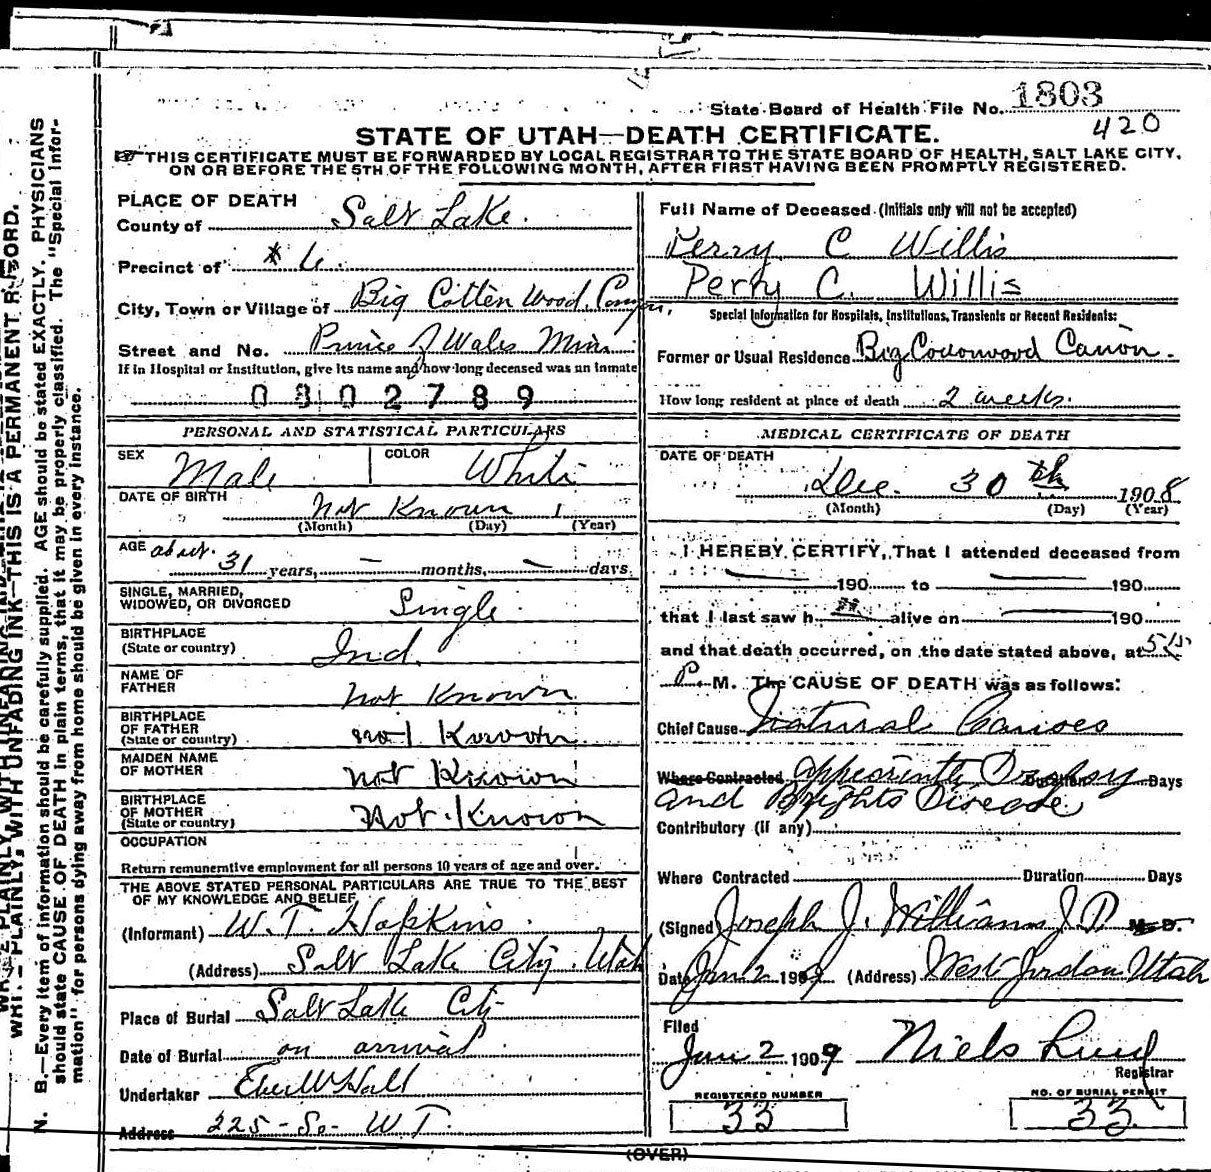 State Board of Health File No. 1803
420
STATE OF UTAH—DEATH CERTIFICATE.
THIS CERTIFICATE MUST BE FORWARDED BY LOCAL REGISTRAR TO THE STATE BOARD OF HEALTH, SALT LAKE CITY,
ON OR BEFORE THE 5TH OF THE FOLLOWING MONTH, AFTER FIRST HAVING BEEN PROMPTLY REGISTERED.
PLACE OF DEATH
County of Salt Lake.
Precinct of # 6.
City, Town or Village of Big Cotten Wood Canyon,
Street and No. Prince of Wales Mine
If in Hospital or Institution, give its name and how long deceased was an inmate
0802789
PERSONAL AND STATISTICAL PARTICULARS
SEX Male COLOR White
DATE OF BIRTH Not Known 1
(Month) (Day) (Year)
AGE about 31 years, — months, — days.
SINGLE, MARRIED,
WIDOWED, OR DIVORCED Single
BIRTHPLACE
(State or country) Ind.
NAME OF
FATHER Not Known
BIRTHPLACE
OF FATHER
(State or country) not Known.
MAIDEN NAME
OF MOTHER not Known
BIRTHPLACE
OF MOTHER
(State or country) Not Known
OCCUPATION
Return remunerative employment for all persons 10 years of age and over.
THE ABOVE STATED PERSONAL PARTICULARS ARE TRUE TO THE BEST
OF MY KNOWLEDGE AND BELIEF
(Informant) W. T. Hopkins.
(Address) Salt Lake City. Utah
Place of Burial Salt Lake City
Date of Burial on arrival
Undertaker Eber W Hall
Address 225 - So - W. T.
Full Name of Deceased (Initials only will not be accepted)
Perry C Willis
Perry C. Willis
Special Information for Hospitals, Institutions, Transients or Recent Residents:
Former or Usual Residence Big Cottonwood Canon.
How long resident at place of death 2 weeks.
MEDICAL CERTIFICATE OF DEATH
DATE OF DEATH
Dec. 30 th 1908
(Month) (Day) (Year)
I HEREBY CERTIFY, That I attended deceased from
190 to 190
that I last saw h alive on 190
and that death occurred, on the date stated above, at 515
P. M. The CAUSE OF DEATH was as follows:
Chief Cause Natural Causes
Where Contracted Apparently Dropsy Duration Days
and Brights Disease
Contributory (if any)
Where Contracted Duration Days
(Signed) Joseph J. Williams J.P. M. D.
Date Jan 2 1909 (Address) West Jordan Utah
Filed
Jan 2 1909 Niels Lind
Registrar
REGISTERED NUMBER
33
NO. OF BURIAL PERMIT
33
(OVER)
WRITE PLAINLY, WITH UNFADING INK—THIS IS A PERMANENT RECORD.
N. B.—Every item of information should be carefully supplied. AGE should be stated EXACTLY. PHYSICIANS
should state CAUSE OF DEATH in plain terms, that it may be properly classified. The "Special Infor-
mation" for persons dying away from home should be given in every instance.